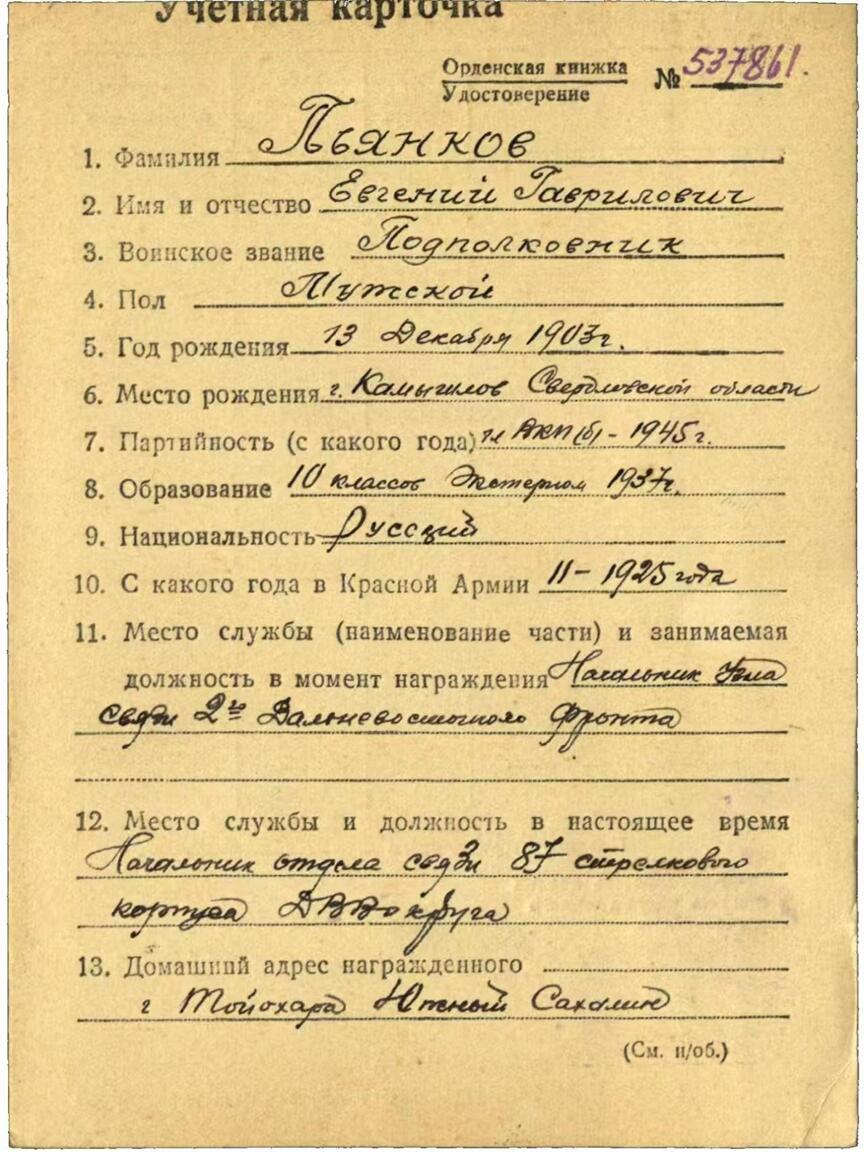 Учетная карточка
Орденская книжка
Удостоверение
№ 537861.
1. Фамилия Пьянков
2. Имя и отчество Евгений Гаврилович
3. Воинское звание Подполковник
4. Пол Мужской
5. Год рождения 13 Декабря 1903г.
6. Место рождения г. Камышлов Свердловской области
7. Партийность (с какого года) чл ВКП(б) - 1945г.
8. Образование 10 классов Экстерном 1937г.
9. Национальность Русский
10. С какого года в Красной Армии 11 - 1925 года
11. Место службы (наименование части) и занимаемая
должность в момент награждения Начальник Узла
связи 2го Дальневосточного Фронта
12. Место службы и должность в настоящее время
Начальник отдела связи 87 стрелкового
корпуса ДВВокруга
13. Домашний адрес награжденного
г Тойохара Южный Сахалин
(См. н/об.)